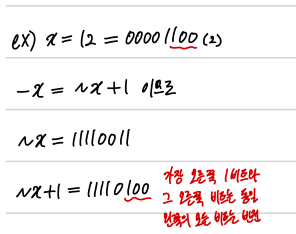 ex) x = 12 = 00001100 (2)
-x = ~x+1 이므로
~x = 11110011
~x+1 = 11110100
가장 오른쪽 1비트와
그 오른쪽 비트는 동일
왼쪽의 모든 비트는 반전